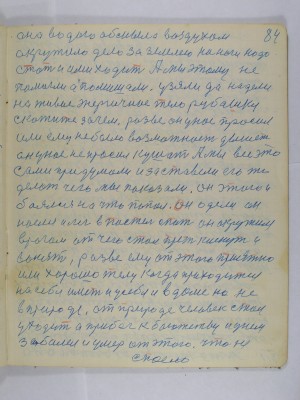 84
она водою обоивела воздухом
окружило дело За Землею на ноги надо
стоять или ходить А мы этому не
помыли а помишали. узяли да надели
на тивые энергичное тело рубашку
скажите зачем. разве он у нас просил
или ему небыло возможност движет
он у нас не просил кушат А мы все это
сами придумали и заставели его же
делат чего мы показали. он этого и
боялся на что попал. Он одели он
наели и лег в постел спат он окружил
врагом от чего стал преть киснуть и
вонять, разве ему от этого приятно
или хорошо телу когда приходится
на себи иметь и у себя и в доме но не
в природе, от природе человек стал
уходить а прибег к богатству и у нем
заболел и умер от этого. что не
спасло